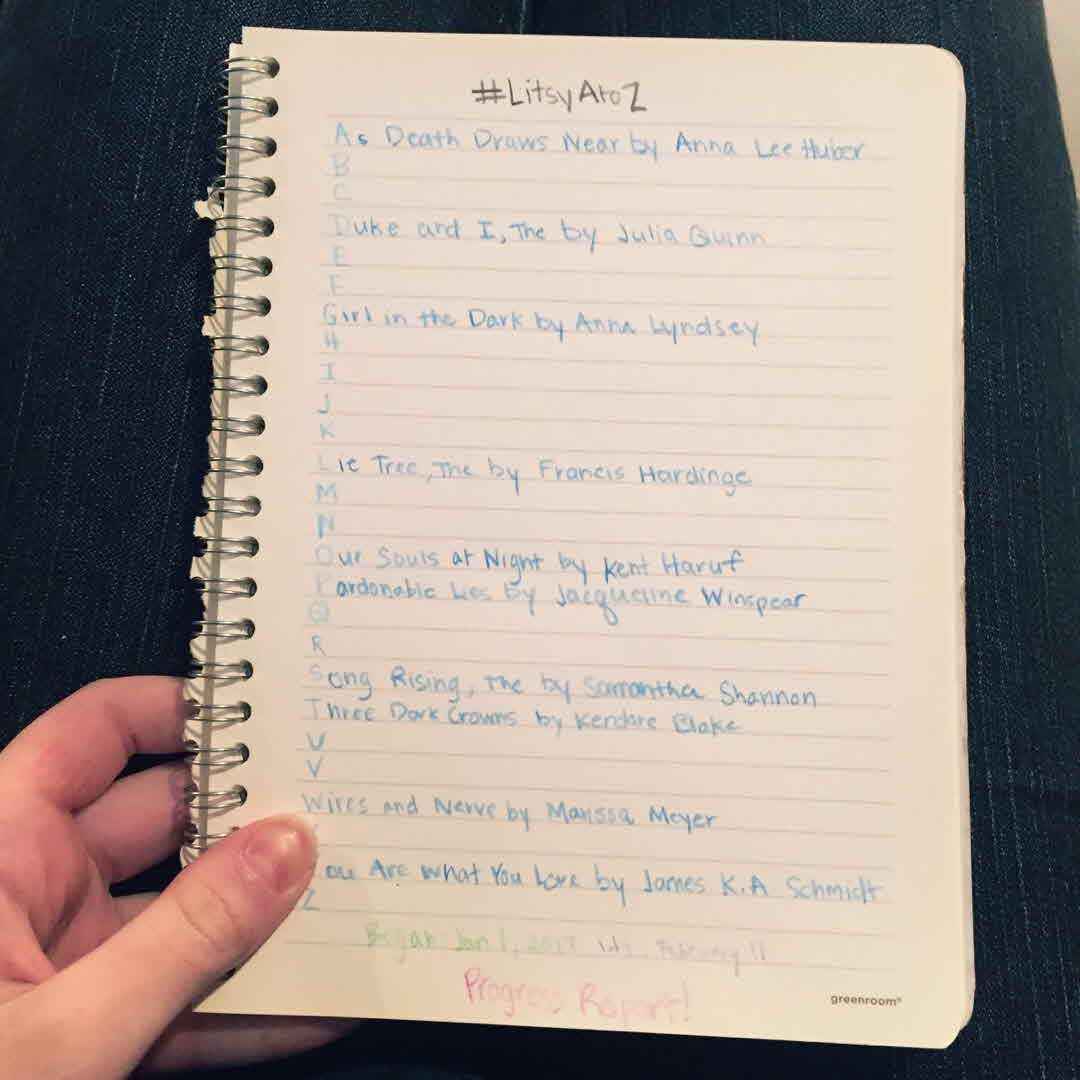 #LitsyAtoZ
As Death Draws Near by Anna Lee Huber
B
C
Duke and I, The by Julia Quinn
E
F
Girl in the Dark by Anna Lyndsey
H
I
J
K
Lie Tree, The by Francis Hardinge
M
N
Our Souls at Night by Kent Haruf
Pardonable Lies by Jacqueline Winspear
Q
R
Song Rising, The by Samantha Shannon
Three Dark Crowns by Kendare Blake
U
V
Wires and Nerve by Marissa Meyer
You Are What You Love by James K.A Schmidt
Z
Began Jan 1, 2017 February 11
Progress Report!
greenroom®